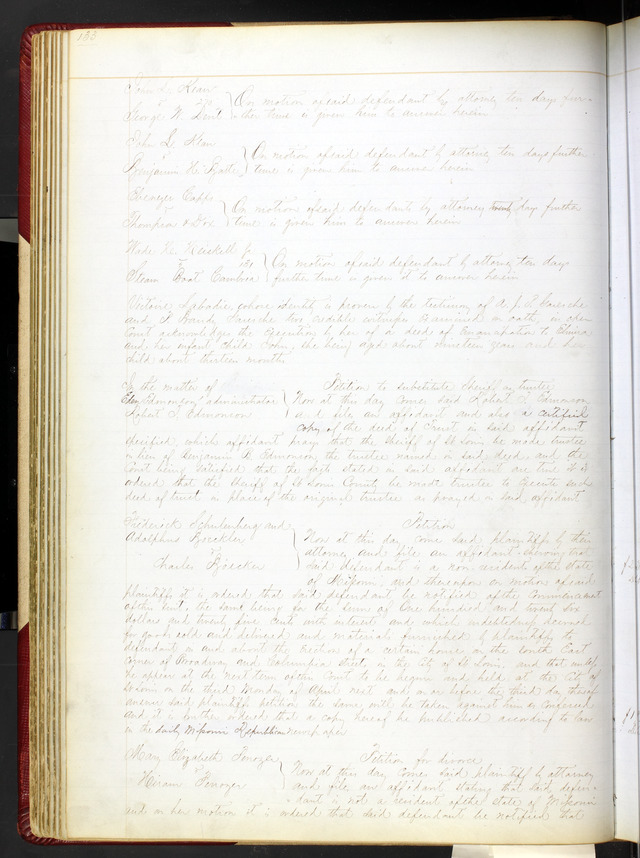 133
On motion of said defendant by attorney ten days fur-
George W. Dent ther time is given him to answer herein
vs
On motion of said defendant by attorney ten days further
Benjamin H. time is given him to answer herein
Ebenezer Capps
vs On motion of said defendants by attorney days further
Thompson & time is given him to answer herein
Wade H. Heiskell Jr
vs On motion of said defendant by attorney ten days
Steam Boat Cambria further time is given it to answer herein
Victoire Labadie, whose identity is proven by the testimony of A. J. P. Garesche
and two credible witnesses examined on oath, in open
Court acknowledges the execution by her of a deed of Emancipation to
and her infant child John, she being aged about nineteen years and her
child about thirteen months
In the matter of Petition to substitute Sheriff as trustee
Edmonson, administrator Now at this day comes said Robert S. Edmonson
Robert S. Edmonson and files an affidavit and also a certified
copy of the deed of trust in said affidavit
specified, which affidavit prays that the Sheriff of St Louis be made trustee
in lieu of Benjamin Edmonson the trustee named in said deed and the
Court being satisfied that the facts stated in said affidavit are true it is
ordered that the Sheriff of St Louis County be made trustee to execute said
deed of trust in place of the original trustee as prayed in said affidavit
Frederick Schulenburg and Petition
Adolphus Boeckler Now at this day come said plaintiffs by their
vs attorney and file an affidavit showing that
Charles Boecker said defendant is a non resident of the state
of Missouri and thereupon on motion of said
plaintiffs it is ordered that said defendant be notified of the commencement
of this suit, the same being for the sum of One hundred and twenty six
dollars and twenty five cents with interest and which indebtedness accrued
for goods sold and delivered and materials furnished by plaintiffs to
defendant in and about the erection of a certain house on the South East
corner of Broadway and Columbia street, in the City of St Louis, and that unless
he appear at the next term of this Court to be begun and held at the City of
St Louis on the third Monday of April next and on or before the third day thereof
answer said plaintiffs petition the same will be taken against him as confessed
and it is further ordered that a copy hereof be published according to law
in the daily Missouri Republican newspaper
Mary Elizabeth Petition for divorce
vs Now at this day comes said plaintiff by attorney
Hiram and files an affidavit stating that said defen-
dant is not a resident of the state of Missouri
and on her motion it is ordered that said defendant be notified that